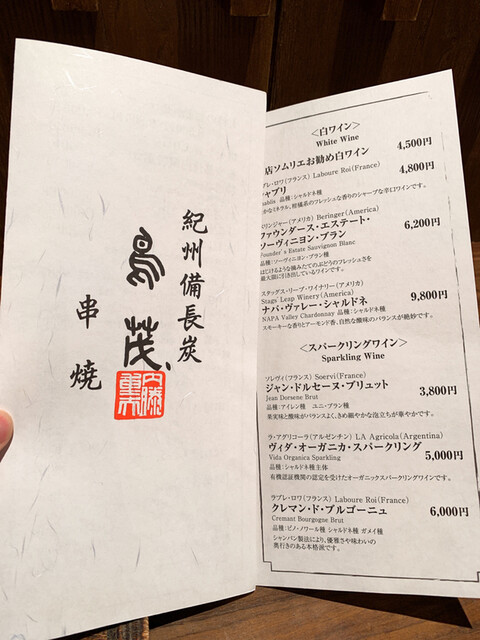 紀州備長炭
鳥茂
串焼
<白ワイン>
White Wine
店ソムリエお勧め白ワイン 4,500円
ブレ・ロワ(フランス) Laboure Roi(France)
シャブリ 4,800円
Chablis 品種:シャルドネ種
かなミネラル、柑橘系のフレッシュな香りのシャープな辛口ワインです。
ベリンジャー(アメリカ) Beringer(America)
ファウンダース・エステート・
ソーヴィニヨン・ブラン 6,200円
Founder's Estate Sauvignon Blanc
品種:ソーヴィニヨン・ブラン種
はじけるような摘みたてのぶどうのフレッシュさを
最大限に引き出しているワインです。
スタッグス・リープ・ワイナリー(アメリカ)
Stags' Leap Winery(America)
ナパ・ヴァレー・シャルドネ 9,800円
NAPA Valley Chardonnay 品種:シャルドネ種
スモーキーな香りとアーモンド香、自然な酸味のバランスが絶妙です。
<スパークリングワイン>
Sparkling Wine
ソレヴィ(フランス) Soervi(France)
ジャン・ドルセーヌ・ブリュット 3,800円
Jean Dorsene Brut
品種:アイレン種 ユニ・ブラン種
果実味と酸味がバランスよく、きめ細やかな泡立ちが華やかです。
ラ・アグリコーラ(アルゼンチン) LA Agricola(Argentina)
ヴィダ・オーガニカ・スパークリング 5,000円
Vida Organica Sparkling
品種:シャルドネ種主体
有機認証機関の認定を受けたオーガニックスパークリングワインです。
ラブレ・ロワ(フランス) Laboure Roi(France)
クレマン・ド・ブルゴーニュ 6,000円
Cremant Bourgogne Brut
品種:ピノ・ノワール種 シャルドネ種 ガメイ種
シャンパン製法により、優雅さや味わいの
奥行きのある本格派です。